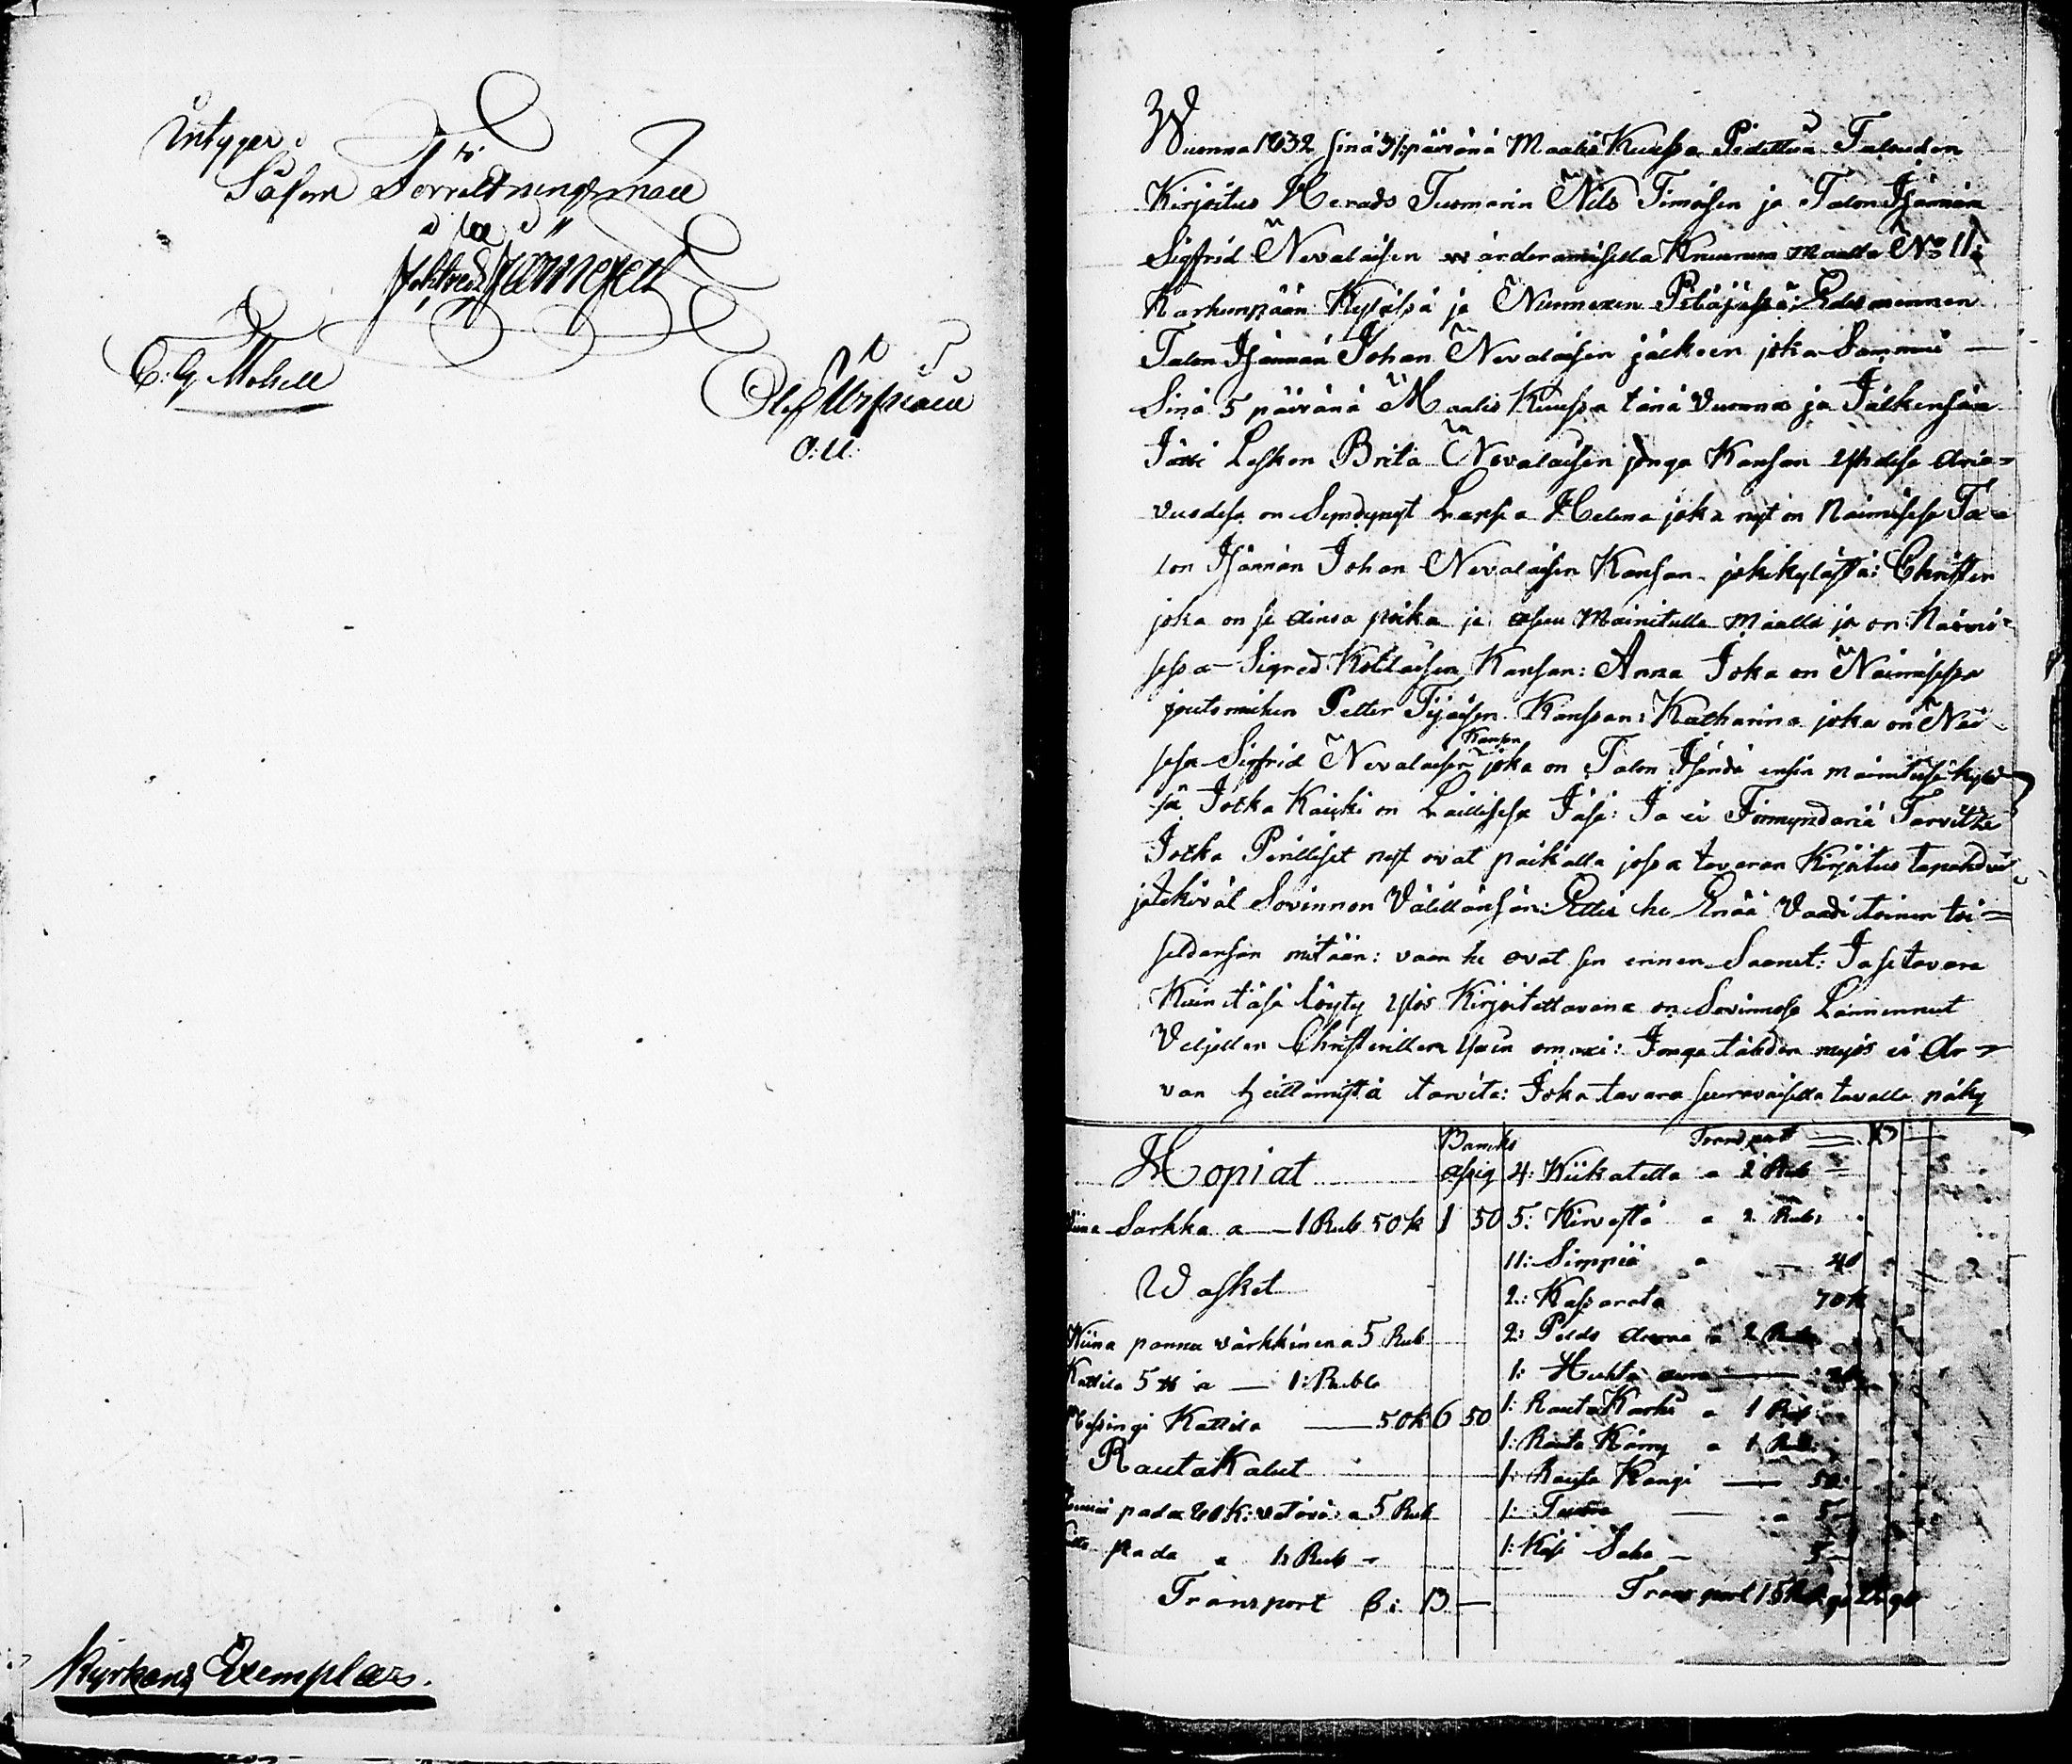 Intygar
Såsom Förrättningsman
C. G. Molsell
O: U:
Kyrkans Exemplar.
Wuonna 1832 sinä 31: päivänä Maalis Kuussa Pidettiin Talouden
Kirjoitus Herads Tuomarin Nils Timoisen ja Talon Isännän
Sigfrid Nevalaisen wärderamisella Kruunun Maalla No 11:
Karhunpään Kyläsä ja Nurmexen Pitäjäsä: Edesmennen
Talon Isännän Johan Nevalaisen jälkeen joka Sammui —
Sinä 5 päivänä Maalis Kuussa tänä Vuonna ja Jälkensän
Jätti Lesken Brita Nevalaisen jonga Kansan Yhdesä Avio=
vuodesa on Syndynyt Lapsia Helena joka nyt on Naimisesa Ta=
lon Isännän Johan Nevalaisen Kansan jokikylästä: Christer
joka on se ainoa poika ja asuu Mainitulla Maalla ja on Naimi=
sessa Sigred Kotilaisen Kansan: Anna Joka on Naimisessa
Petter Kanssan: Katharina joka on Nai
sesa Sigfrid Nevalaisen Kansan joka on Talon Isändä ensin mainitusa kylä
sä Jotka Kaicki on Laillisesa Jäsä: Ja ei Förmyndariä Tarvitze
Jotka Perilliset nyt ovat paikalla jossa tavaran Kirjoitus tapahdui
ja tekivät Sovinnon Välillänsän: Ettei he Enää Vaadi toinen toi=
seldansan mitään: vaan he ovat sen ennen Saanet: Ja se tavara
Kuin täsä löyty Ylös Kirjoitettavana on Sovinnosa Lainnennut
Veljellen Christerillen Yxin omaxi: Jonga tähden myös ei Ar=
van heittämistä tarvita: Joka tavara seuravaisella tavalla näky
Hopiat
Banko
assig
Viina Sarkka a — 1 Rub 50 k 1 50
Wasket
Viina pannu värkkinen a 5 Rub
Kattila 5 ℔ a — 1: Rubla
Messingi Kattila — 50 k 6 50
Rauta Kalut
pada 20 K: vetävä: a 5 Rub
pada a 1: Rub
Transport 6: 13 —
Transport 13 —
4: Viikatetta a 2 Rub
5: Kirvestä a 2 Rub:
11: Sirppiä a — 40
2: Kassarata 70 k
2: Peldo auraa a 2 Rub
1: Huhta aura —
1: Rauta Karhi a 1 Rub
1: Rauta Kärry a 1 Rub:
1: Rauta Kangi — 50
1: Tuura — a 5
1: Käsi Saha — 5
Transport